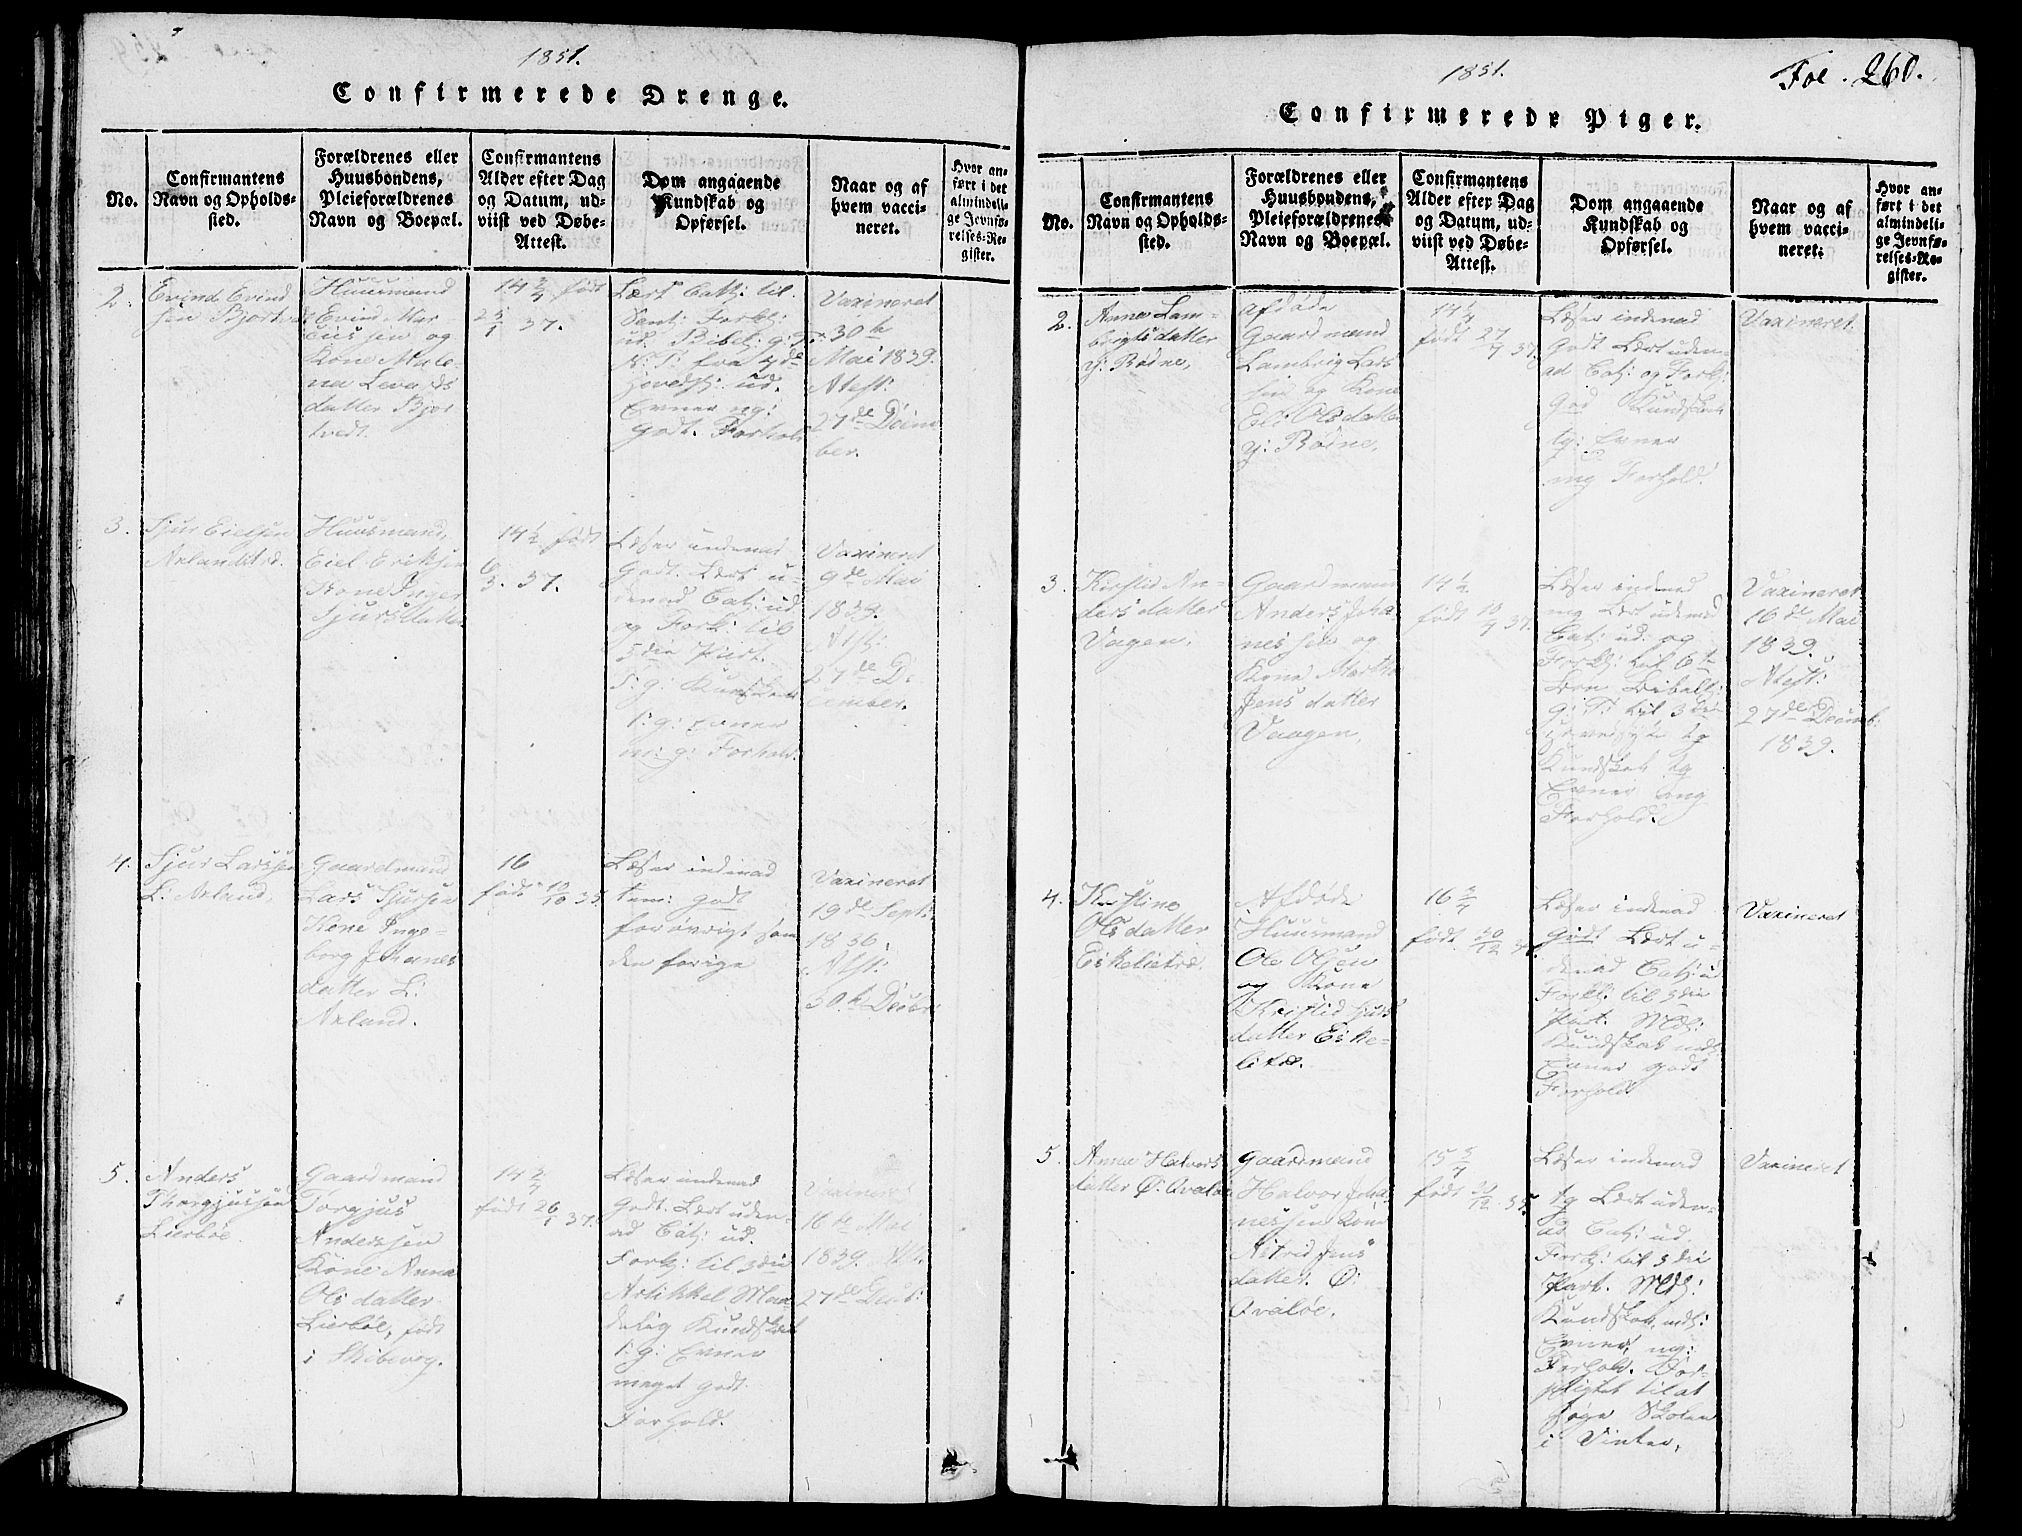 1851.
Confirmerede Drenge.
No.
Confirmantens
Navn og Opholds-
sted.
Forældrenes eller
Huusbondens,
Pleieforældrenes
Navn og Boepæl.
Confirmantens
Alder efter Dag
og Datum, ud-
viist ved Døbe-
Attest.
Dom angaaende
Kundskab og
Opførsel.
Naar og af
hvem vacci-
neret.
Hvor an-
ført i det
almindeli-
ge Jevnfø-
relses-Re-
gister.
2.
Evind Evind
sen
Huusmand
Evind Mar
cussen og
Kone Male-
na
datter Bjor
tvedt.
født
25/1 37.
Lært Catj: til
Bibel:
fra 4de
ud.
Evner ng:
godt. Forhold
Vaxineret
30te
Mai 1839.
Atest:
27de Decem
ber.
3.
Sjur Eielsen
Huusmand,
Eiel Eriksen
Kone Inger
Sjursdatter
14½ født
6/3. 37.
Læser indenad
godt. Lært u-
denad Catj: ud.
og Fork: til
5die Part.
T: g: Kundskab
T: g: Evner
m: g: Forhold.
Vaxineret
9de Mai
1839.
Atest:
27de De
cember.
4.
Sjur Larssen
L: Axland.
Gaardmand
Lars Sjursen
Kone Inge-
borg
datter L:
Axland.
16
født 10/10 35
Læser indenad
tem: godt
forøvrigt som
den forige
Vaxineret
19de Sept:
1836.
Atest:
30te Decbr
5.
Anders
Thorgjussen
Lierbøe.
Gaardmand
Torgjus
Anderssen
Kone Anna
Olsdatter
Lierbøe, født
i
født 26/1 37.
Læser indenad
godt. Lært uden-
ad Catj: ud.
Fork: til 3die
Artikkel Maa
delig Kundskab
T: g: Evner
meget godt
Forhold.
Vaxineret
16de Mai
1839. Att:
27de Decb:
1851.
Fol. 260.
Confirmerede Piger.
No.
Confirmantens
Navn og Opholds-
sted.
Forældrenes eller
Huusbondens,
Pleieforældrenes
Navn og Boepæl.
Confirmantens
Alder efter Dag
og Datum, ud-
viist ved Døbe-
Attest.
Dom angaaende
Kundskab og
Opførsel.
Naar og af
hvem vacci-
neret.
Hvor an-
ført i det
almindeli-
ge Jevnfø-
relses-Re-
gister.
2.
Anna Lam-
brigtsdatter
y: Bødne,
Afdøde
Gaardmand
Lambrig Lars
sen og Kone
Olsdatter
y: Bødne,
født 37.
Læser indenad
godt Lært uden-
ad Catj: og Fork:
god Kundskab
tg: Evner
mg Forhold.
Vaxineret.
3.
Kirstid An-
dersdatter
Vagen,
Gaardmann
Anders Joha
nessen og
Kone Martha
Jensdatter
Vaagen,
14½
født 10/4 37.
Læser indenad
mg Lært udenad
Catj: ud: og
Fork: til 6te
g: T: til 3die
tg
Kundskab tg
Evner mg
Forhold.
Vaxineret
16de Mai
1839.
Atest:
27de Decemb:
1839.
4.
Kirstine
Olsdatter
Eikelietræ.
Afdøde
Huusmand
Ole Olsen
og Kone
Kristid Sjurs
datter Eike-
litræ.
født 30/12
Læser indenad
godt Lært u-
denad Catj: ud
Fork: til 3die
Part. Mdl:
Kundskab mdl:
Evner godt
Forhold
Vaxineret
5.
Anna Halvors
datter Ø: Qvaløe
Gaardmand
Halvor Joha
nessen Kone
Astrid Jens
datter. Ø:
Qvaløe.
født 30/12. 35.
Læser indenad
tg Lært uden-
ad Catj: ud.
Fork: til 3die
Part. Mdl:
Kundskab, mdl:
Evner, ng:
Forhold. For-
pligtet til at
søge Skolen
i Vinter,
Vaxineret